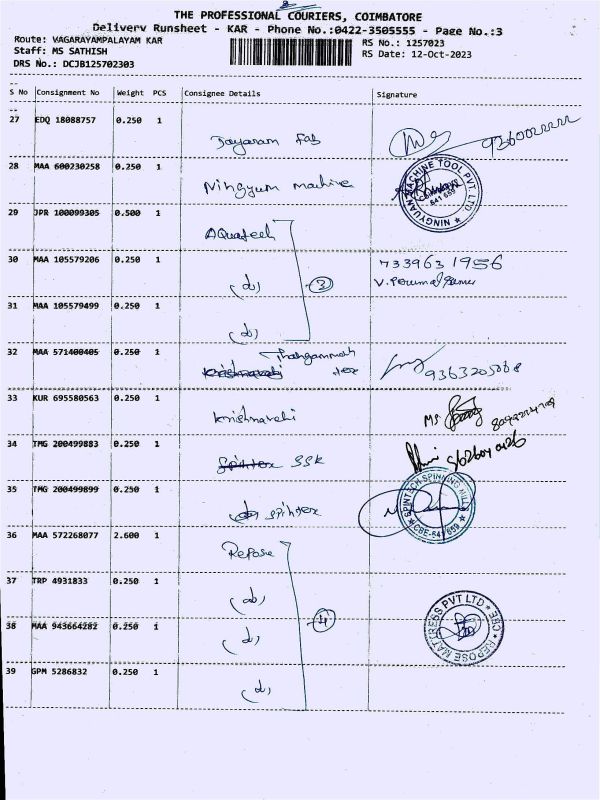 THE PROFESSIONAL COURIERS, COIMBATORE
Delivery Runsheet - KAR - Phone No.:0422-3505555 - Page No.:3
Route: VAGARAYAMPALAYAM KAR
RS No.: 1257023
Staff: MS SATHISH
RS Date: 12-Oct-2023
DRS No.: DCJB125702303
S No Consignment No Weight PCS Consignee Details Signature
27 EDQ 18088757 0.250 1
Jayaram Fab
28 MAA 600230258 0.250 1
Ningyum machine
NINGYUAN MACHINE TOOL PVT. LTD
641 659
29 JPR 100099305 0.500 1
Aquatech
30 MAA 105579206 0.250 1
(d) 3
7339631956
31 MAA 105579499 0.250 1
(d)
32 MAA 571400405 0.250 1
Thangamman tex
33 KUR 695580563 0.250 1
Krishnaveni
34 TMG 200499883 0.250 1
Spintex SSK
35 TMG 200499899 0.250 1
(d) Spintex
SPINTECH SPINNING MILLS
CBE-641 659
36 MAA 572268077 2.600 1
Repose
37 TRP 4931833 0.250 1
(d)
4
38 MAA 943664282 0.250 1
(d)
REPOSE MATTRESS PVT LTD CBE
39 GPM 5286832 0.250 1
(d)